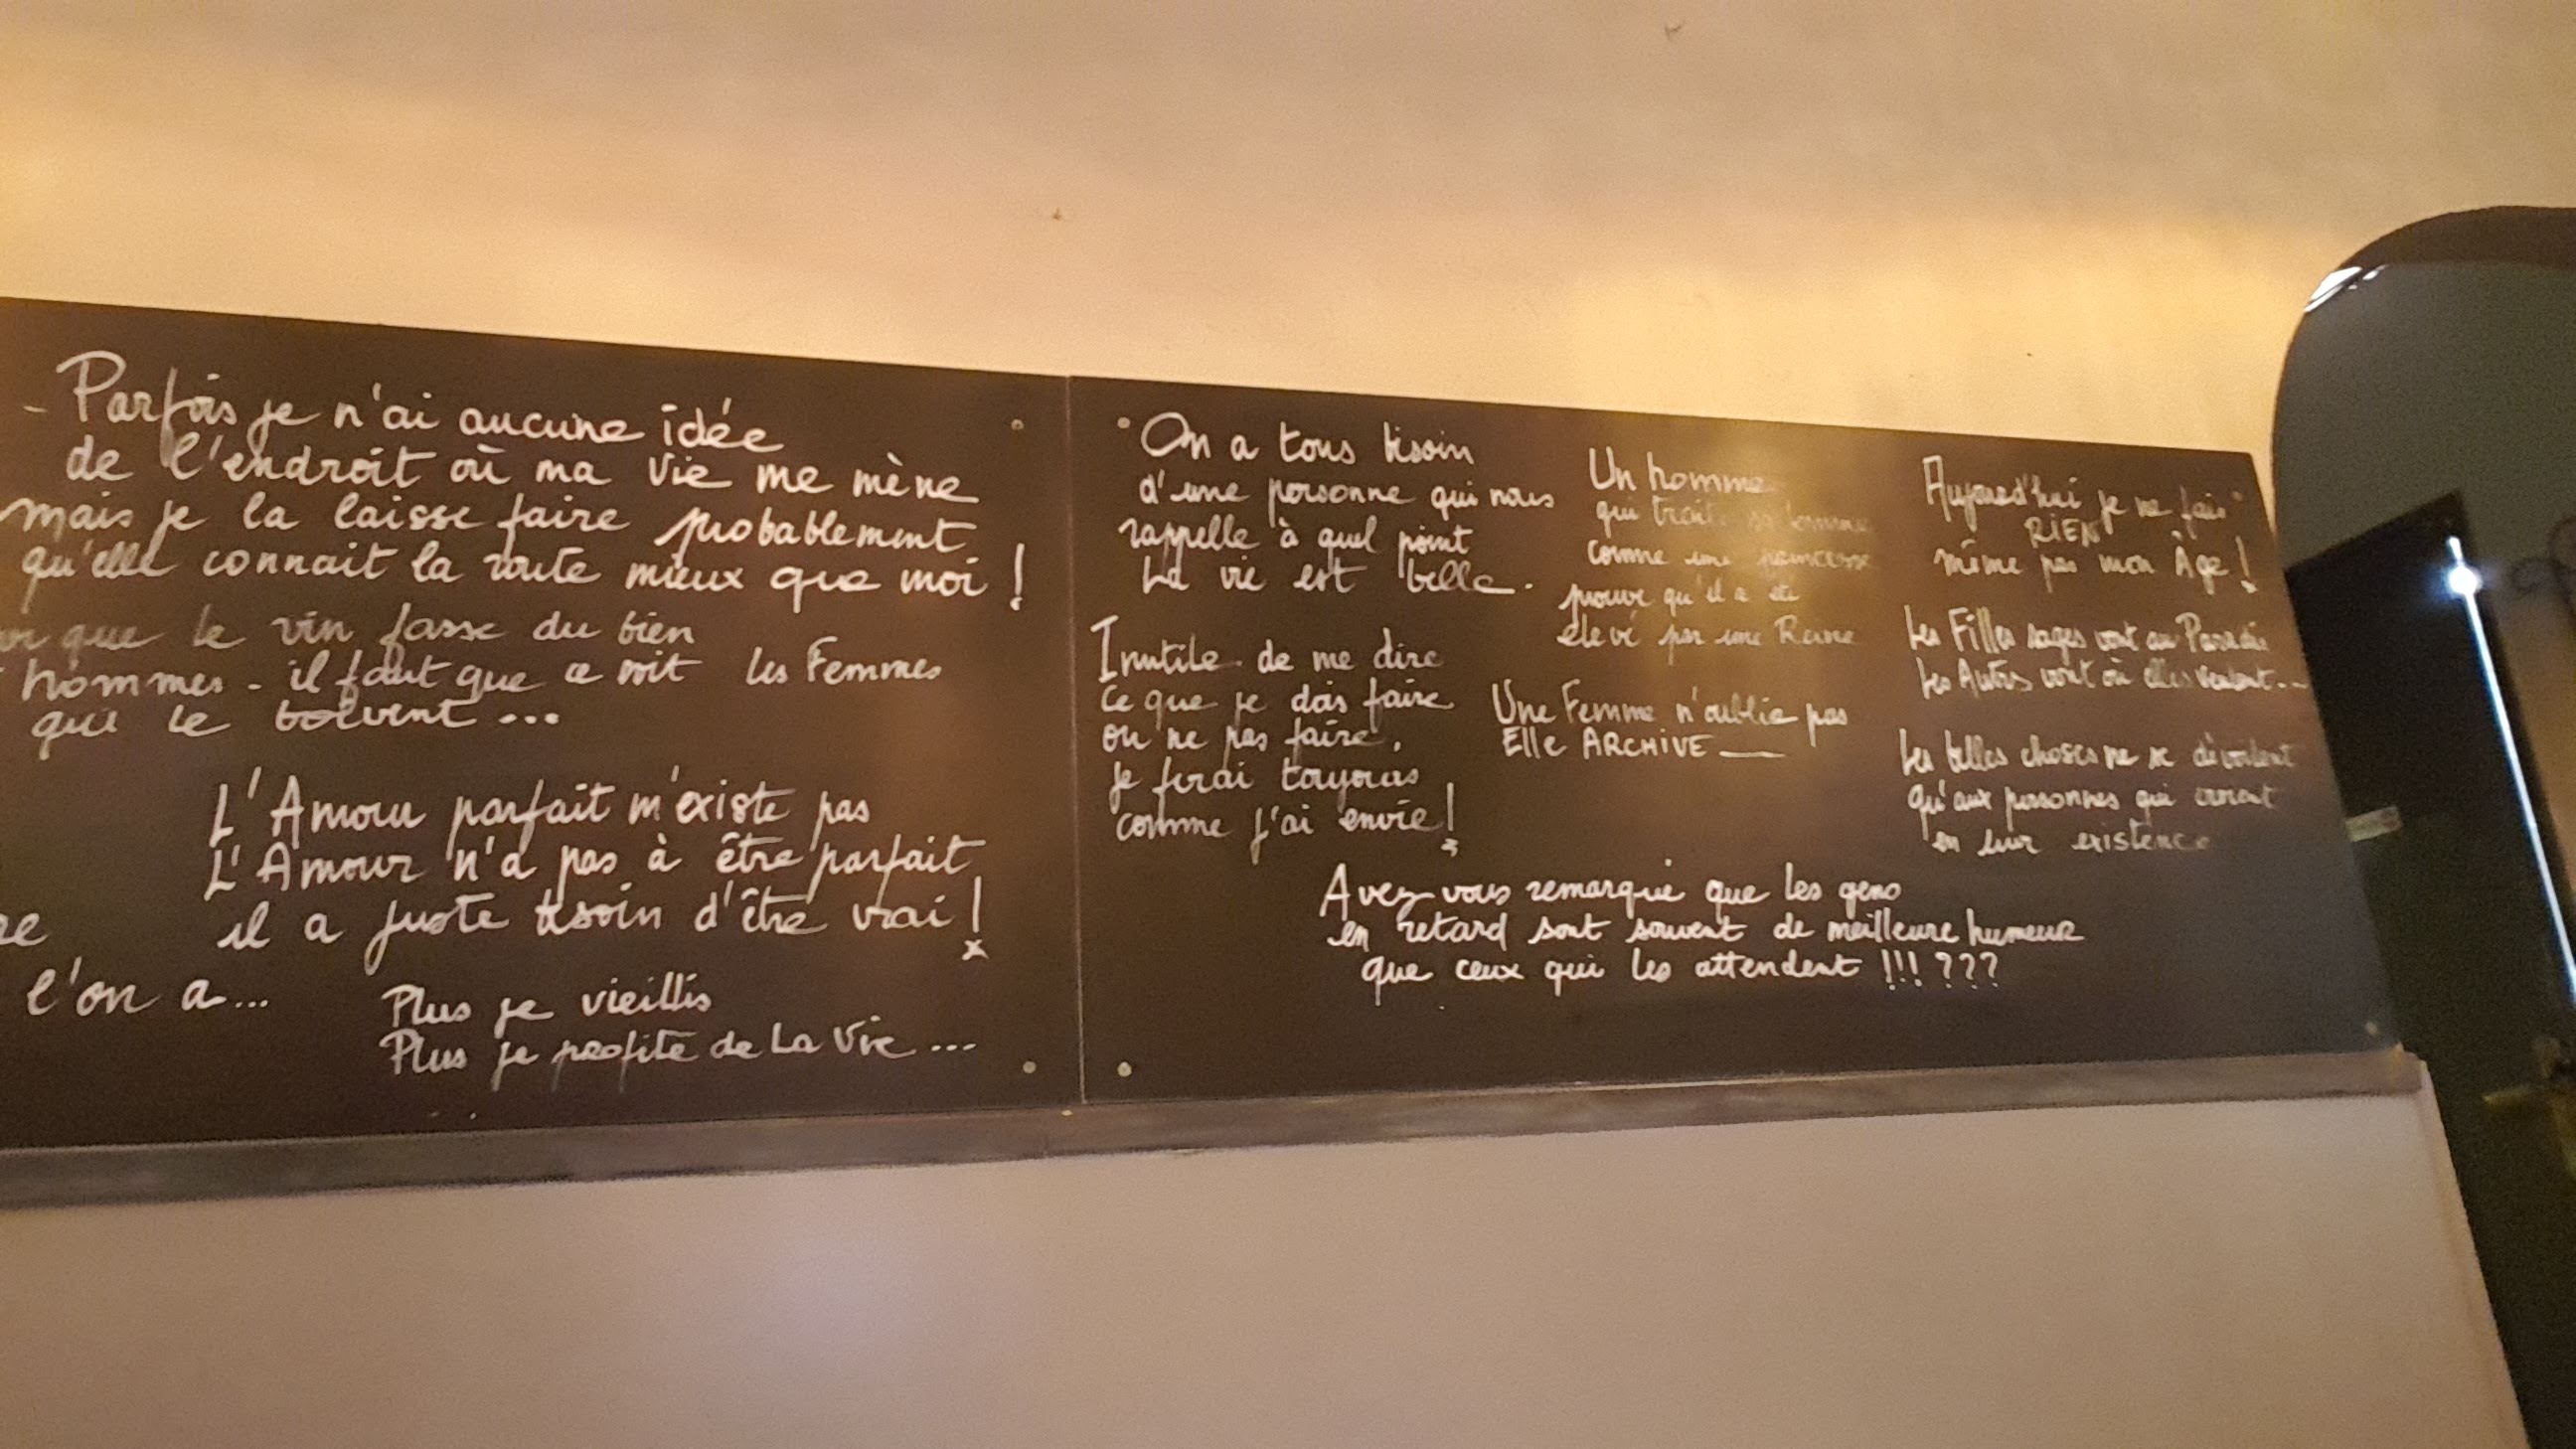 - Parfois je n'ai aucune idée
de l'endroit où ma vie me mène
mais je la laisse faire probablement
qu'elle connait la route mieux que moi !
que le vin fasse du bien
hommes - il faut que ce soit les Femmes
qui le boivent ...
L'Amour parfait n'existe pas
L'Amour n'a pas à être parfait
il a juste besoin d'être vrai !
l'on a ...
Plus je vieillis
Plus je profite de La Vie ...
On a tous besoin
d'une personne qui nous
rappelle à quel point
La vie est belle.
Inutile de me dire
ce que je dois faire
ou ne pas faire,
je ferai toujours
comme j'ai envie !
Un homme
qui traite sa femme
comme une princesse
prouve qu'il a été
élevé par une Reine
Une Femme n'oublie pas
Elle ARCHIVE
Aujourd'hui je ne fais
RIEN
même pas mon Âge !
Les Filles sages vont au Paradis
Les Autres vont où elles veulent...
Les belles choses ne se dévoilent
qu'aux personnes qui croient
en leur existence
Avez-vous remarqué que les gens
en retard sont souvent de meilleure humeur
que ceux qui les attendent !!! ???